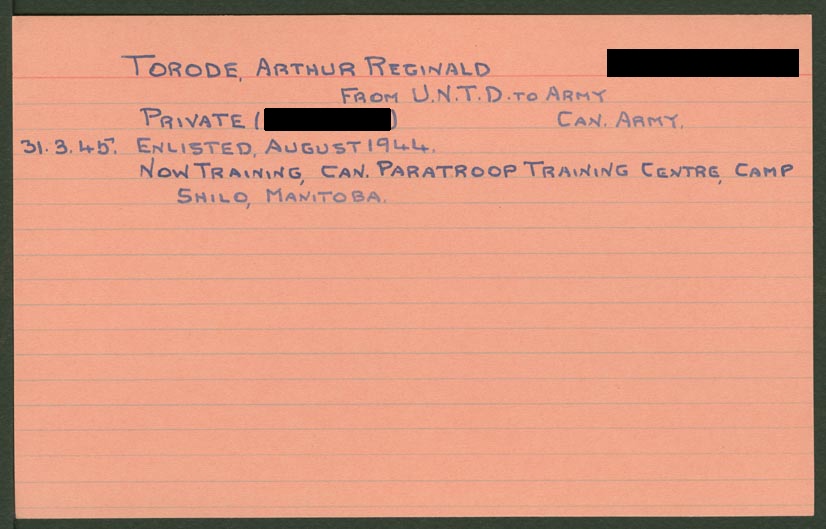 TORODE, ARTHUR REGINALD
FROM U.N.T.D. TO ARMY
PRIVATE ( ) CAN. ARMY.
31.3.45. ENLISTED, AUGUST 1944.
NOW TRAINING, CAN. PARATROOP TRAINING CENTRE, CAMP
SHILO, MANITOBA.